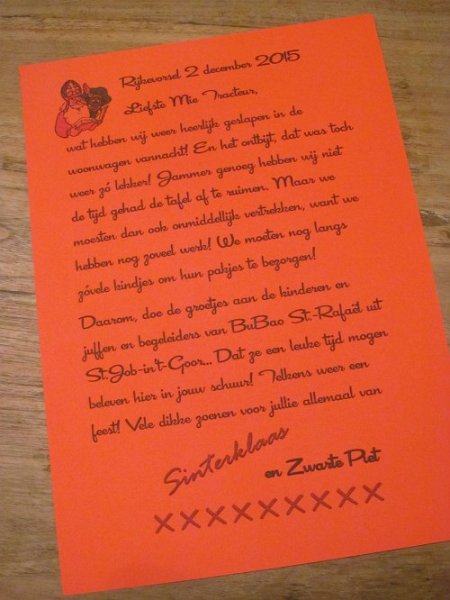 Rijkevorsel 2 december 2015
Liefste Mie Tracteur,
wat hebben wij weer heerlijk geslapen in de
woonwagen vannacht! En het ontbijt, dat was toch
weer zó lekker! Jammer genoeg hebben wij niet
de tijd gehad de tafel af te ruimen. Maar we
moesten dan ook onmiddellijk vertrekken, want we
hebben nog zoveel werk! We moeten nog langs
zóvele kindjes om hun pakjes te bezorgen!
Daarom, doe de groetjes aan de kinderen en
juffen en begeleiders van BuBao St.-Rafaël uit
St.Job-in't-Goor... Dat ze een leuke tijd mogen
beleven hier in jouw schuur! Telkens weer een
feest! Vele dikke zoenen voor jullie allemaal van
Sinterklaas
en Zwarte Piet
XXXXXXXXX